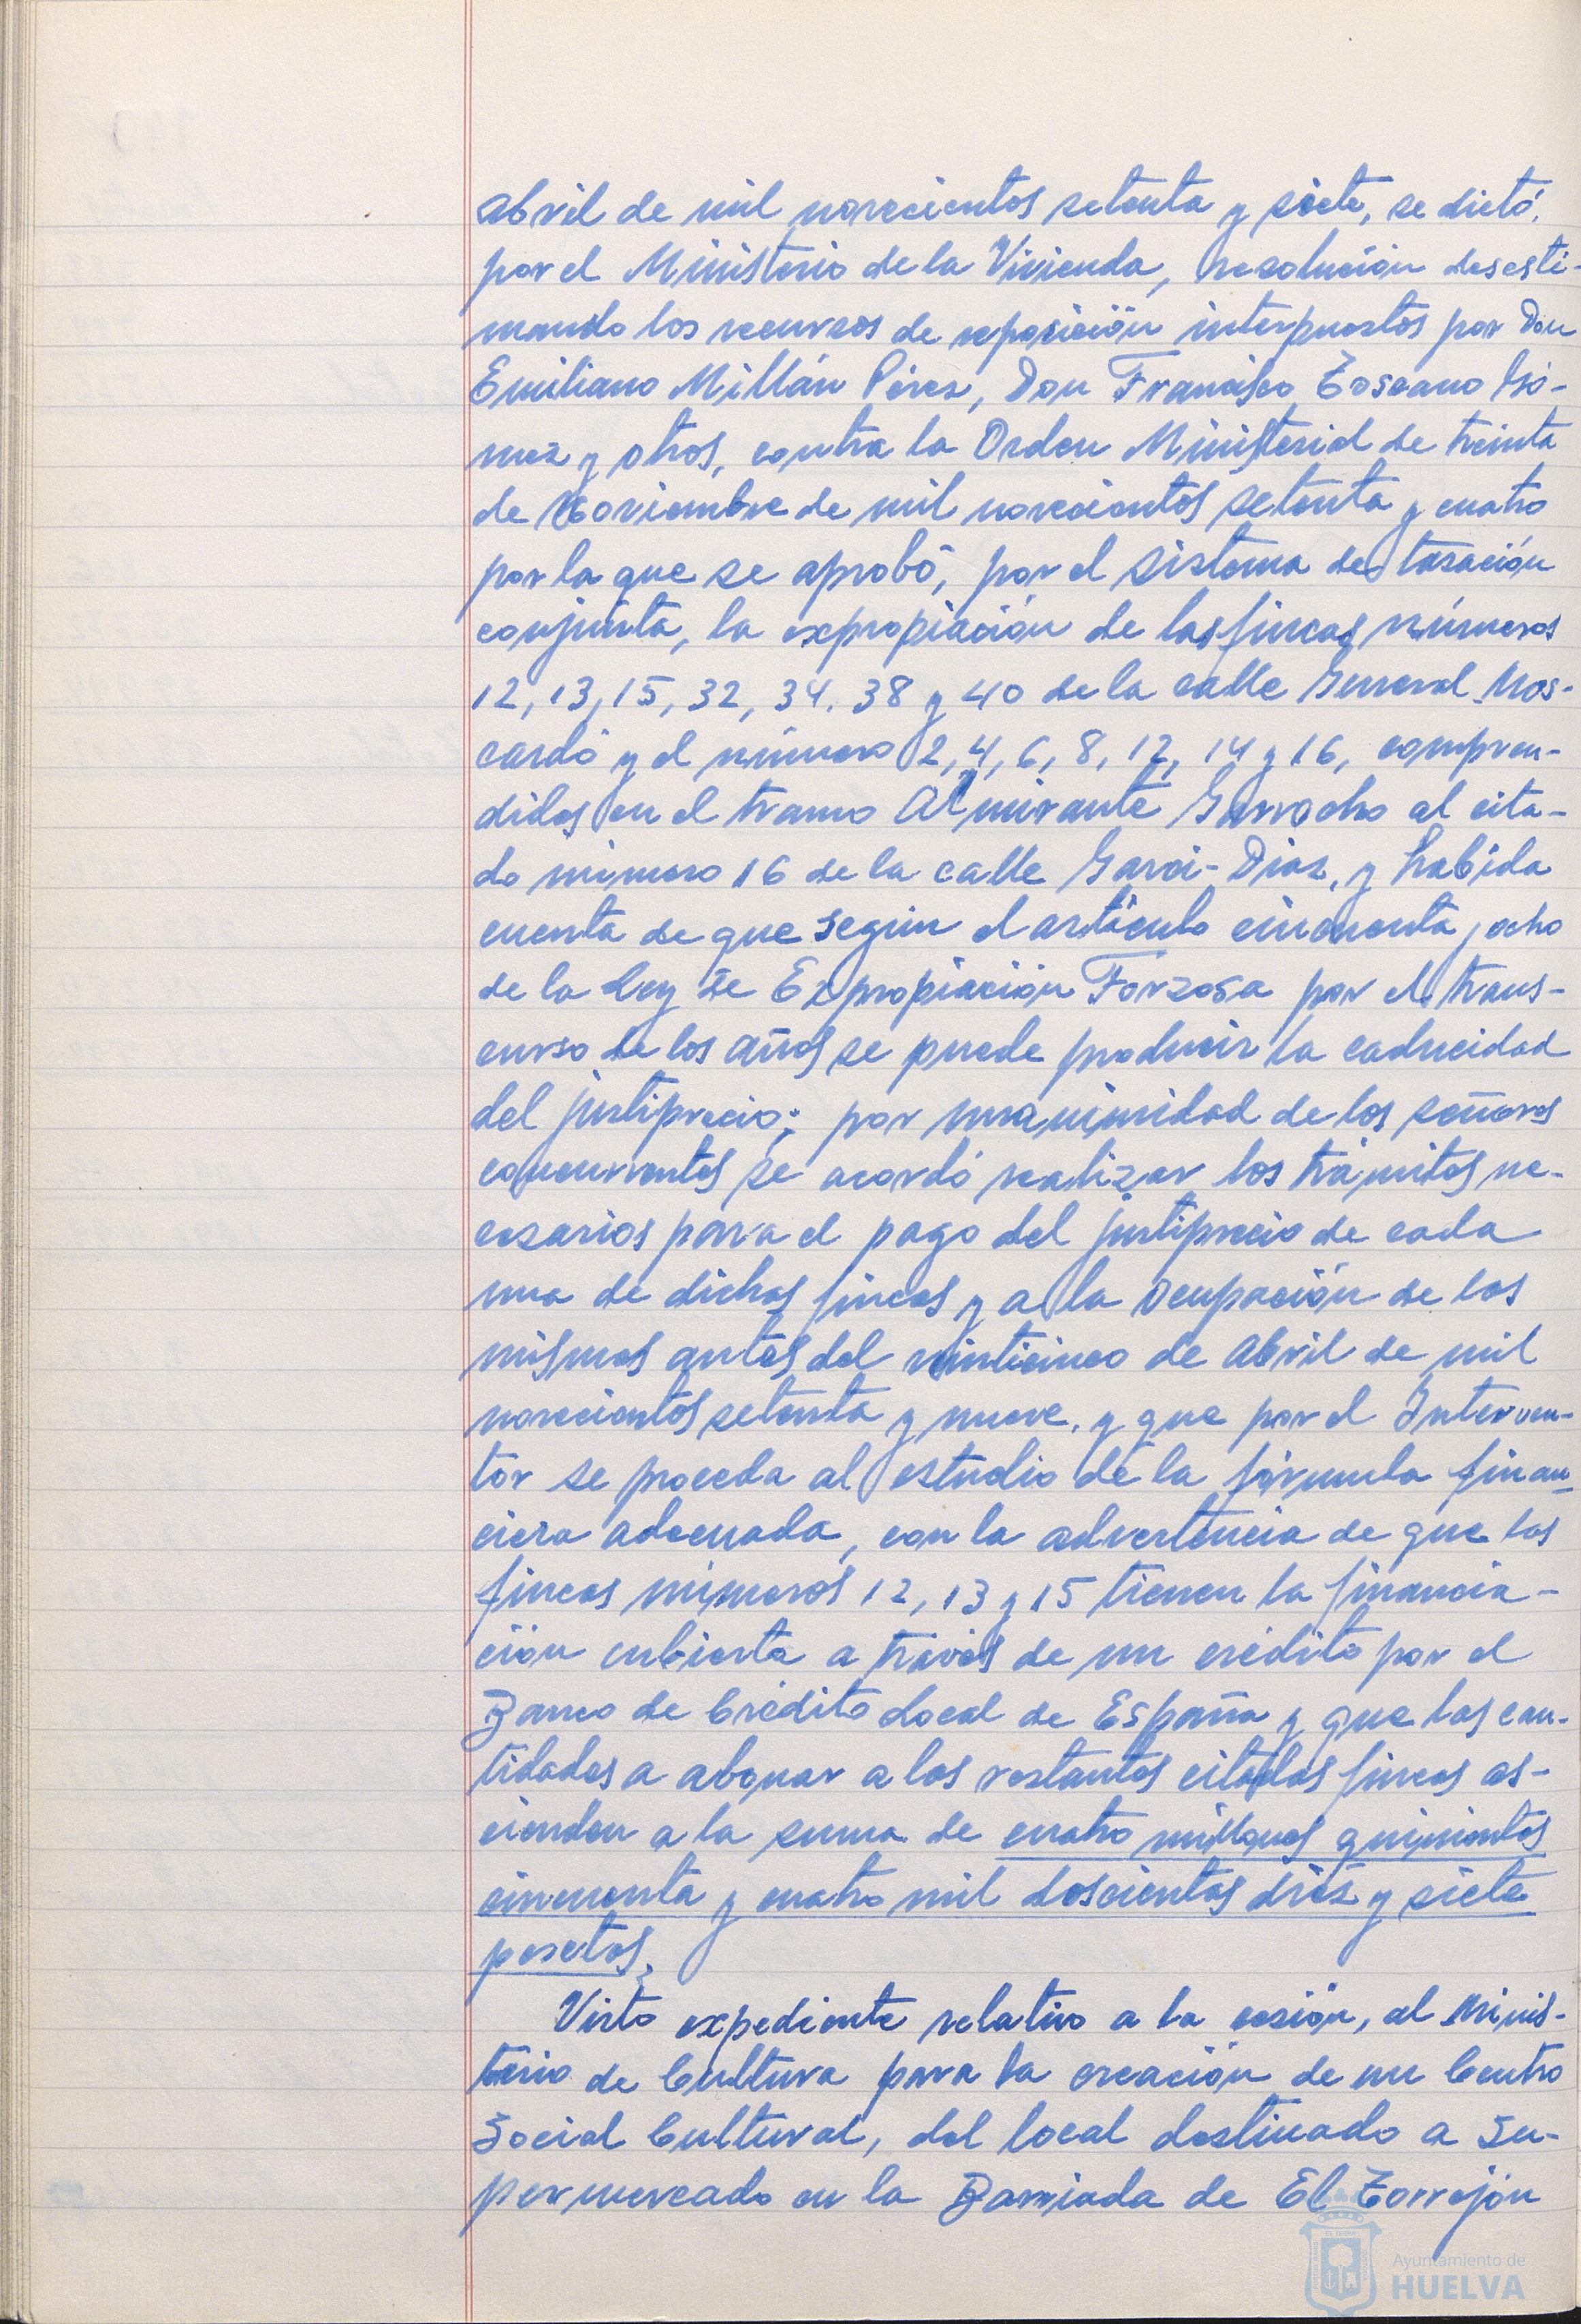 abril de mil novecientos setenta y siete, se dictó,
por el Ministerio de la Vivienda, resolución desesti-
mando los recursos de reposición interpuestos por Don
Emiliano Millán Pérez, Don Francisco Toscano Gó-
mez y otros, contra la Orden Ministerial de treinta
de Noviembre de mil novecientos setenta y cuatro
por la que se aprobó, por el sistema de tasación
conjunta, la expropiación de las fincas números
12, 13, 15, 32, 34, 38 y 40 de la calle General Mos-
cardó y el número 2, 4, 6, 8, 12, 14 y 16, compren-
didos en el tramo Almirante Garrocho al cita-
do número 16 de la calle Garci-Díaz, y habida
cuenta de que según el artículo cincuenta y ocho
de la Ley de Expropiación Forzosa por el trans-
curso de los años se puede producir la caducidad
del justiprecio; por unanimidad de los señores
concurrentes se acordó realizar los trámites ne-
cesarios para el pago del justiprecio de cada
una de dichas fincas y a la ocupación de las
mismas antes del veinticinco de Abril de mil
novecientos setenta y nueve, y que por el Interven-
tor se proceda al estudio de la fórmula finan-
ciera adecuada, con la advertencia de que las
fincas números 12, 13 y 15 tienen la financia-
ción cubierta a través de un crédito por el
Banco de Crédito Local de España y que las can-
tidades a abonar a las restantes citadas fincas as-
cienden a la suma de cuatro millones quinientas
cincuenta y cuatro mil doscientas diez y siete
pesetas.
Visto expediente relativo a la cesión, al Minis-
terio de Cultura para la creación de un Centro
Social Cultural, del local destinado a Su-
permercado en la Barriada de El Torrejón
Ayuntamiento de
HUELVA